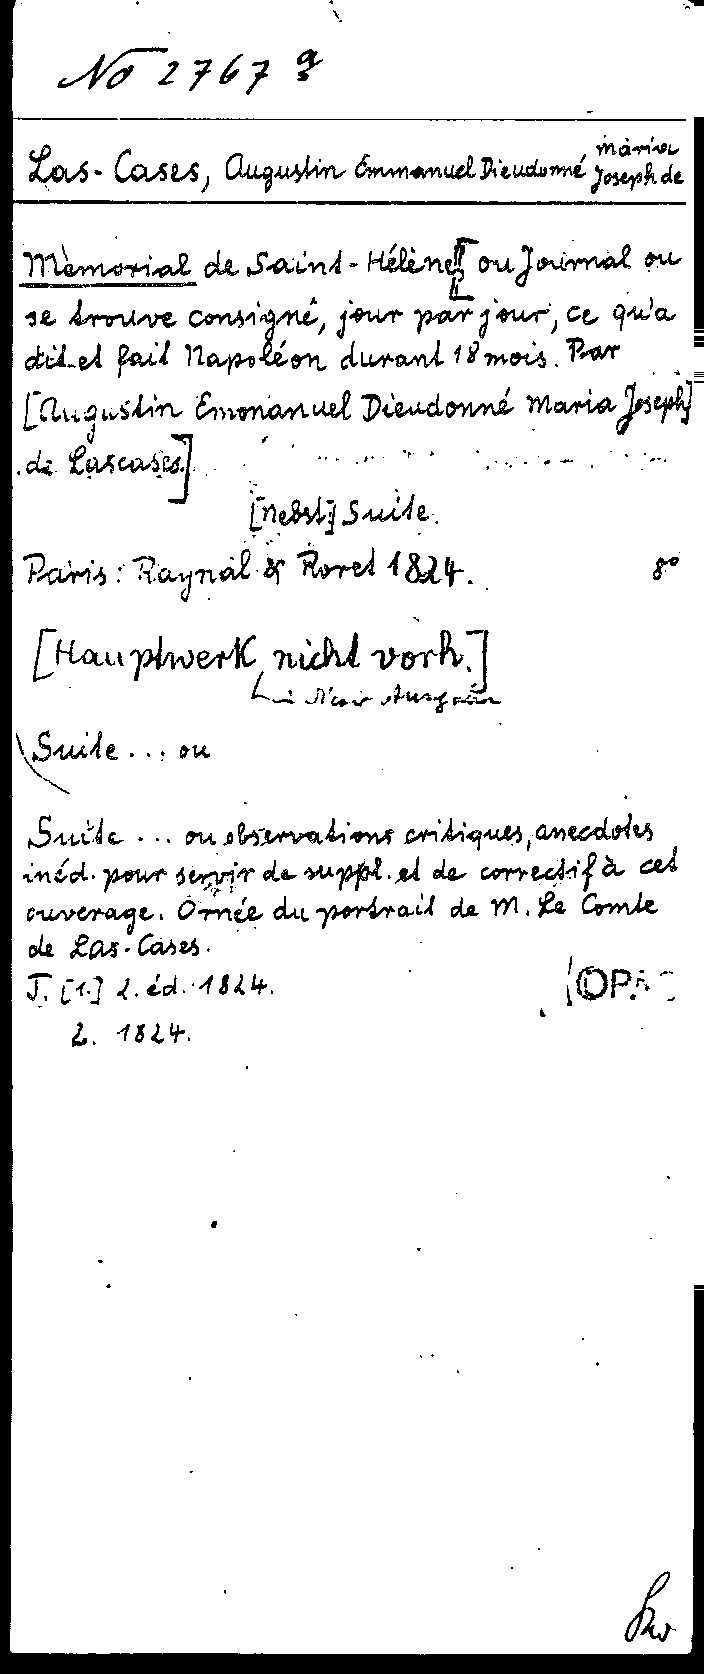 No 2767 a
Las-Cases, Augustin Emmanuel Dieudonné Maria
Joseph de
Mèmorial de Saint-Hélène[] ou Journal ou
se trouve consigné, jour par jour, ce qu'a
dit et fait Napoléon durant 18 mois. Par
[Augustin Emonanuel Dieudonné Maria Joseph]
de Lascases.]
[Nebst] Suite.
Paris: Raynal & Roret 1824. 8°
[Hauptwerk nicht vorh.]
Ausgabe
Suite ... ou
Suite ... ou observations critiques, anecdotes
inéd. pour servir de suppl. et de correctif à cet
ouverage. Ornée du portrait de M. Le Comte
de Las-Cases.
T. [1.] 2. éd. 1824.
2. 1824.
OPAC